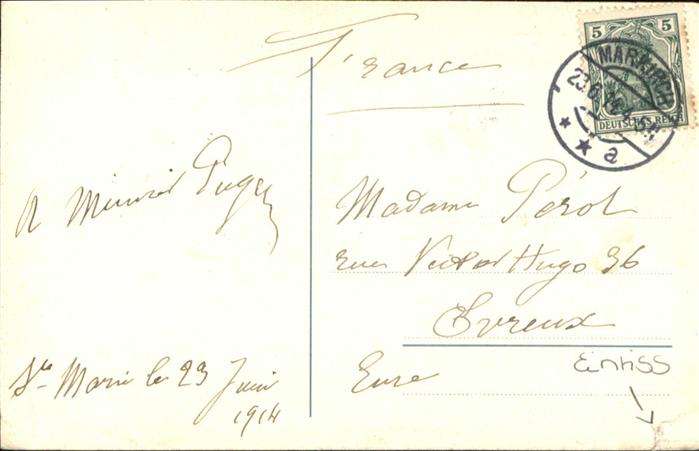 France
5 5
DEUTSCHES REICH
MARKIRCH
23.6.14
a
Madame Pérol
rue Victor Hugo 36
Evreux
Eure
Einriss
Ste Marie le 23 Juin
1914